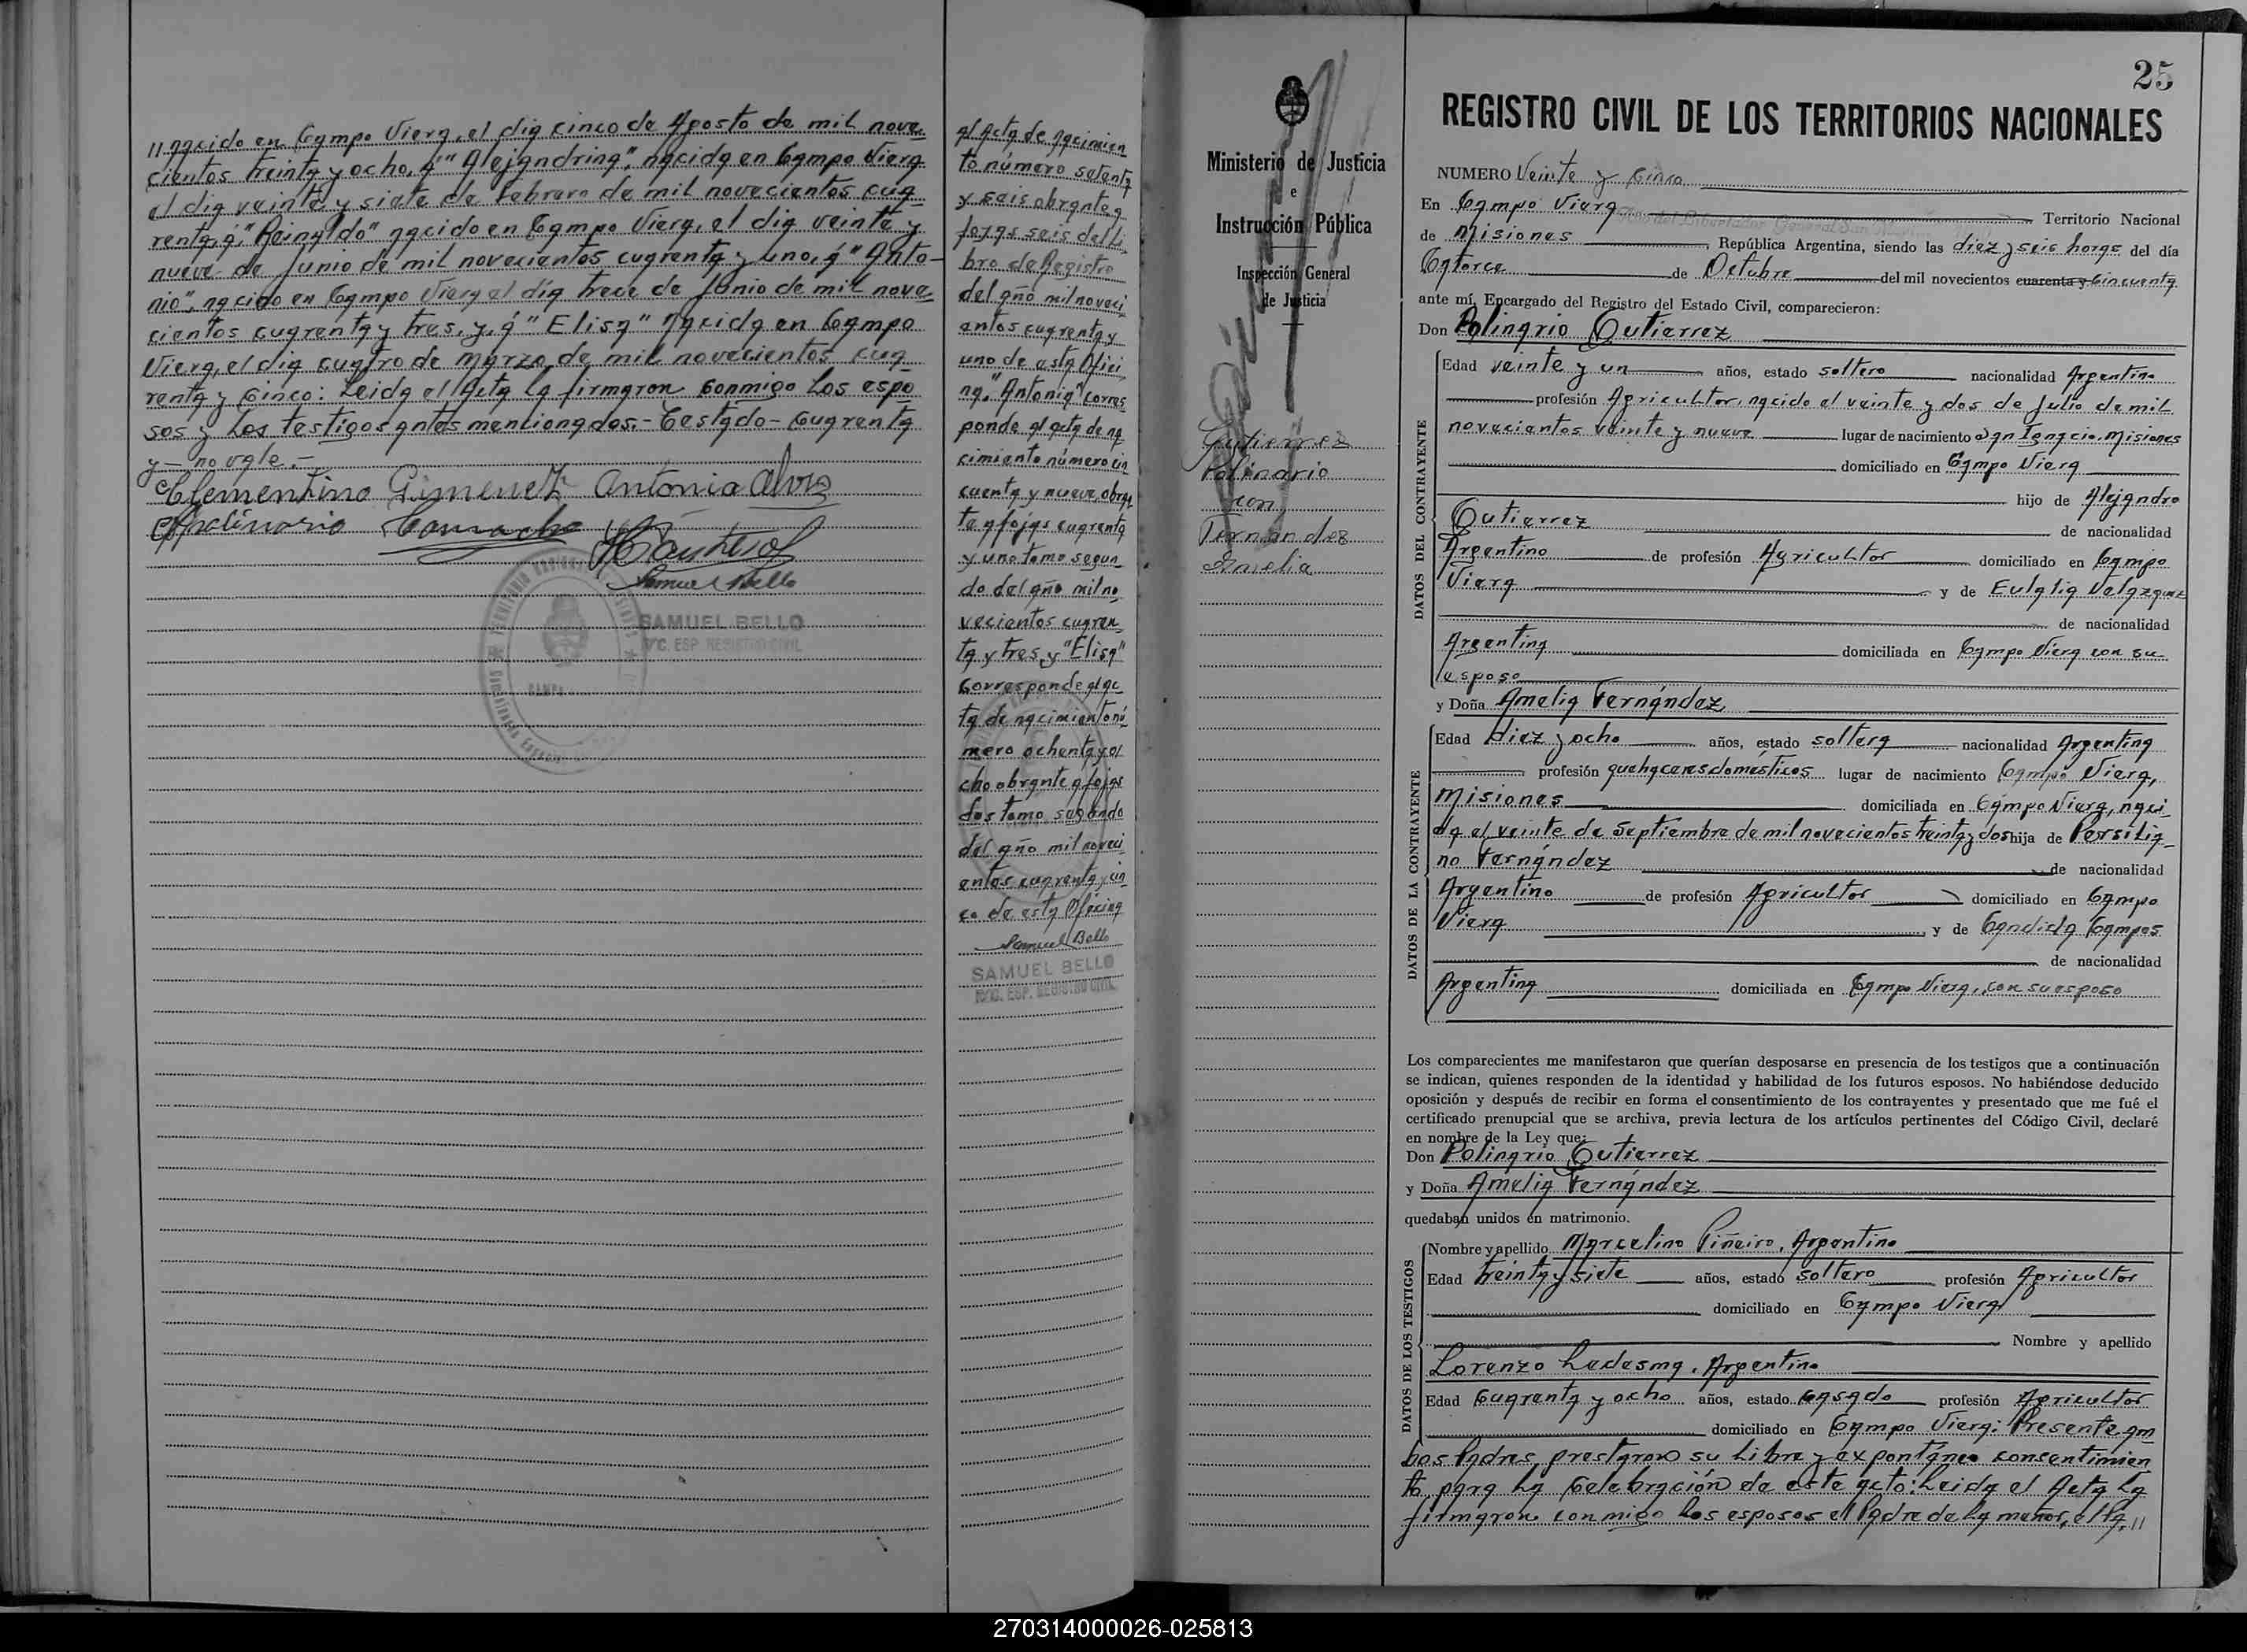 // nacido en Campo Viera, el dia cinco de Agosto de mil nove-
cientos treinta y ocho, á "Alejandrina", nacida en Campo Viera
el dia veinte y siete de Febrero de mil novecientos cua-
renta, á "Reinaldo" nacido en Campo Viera, el dia veinte y
nueve de Junio de mil novecientos cuarenta y uno, á "Anto-
nio", nacido en Campo Viera el día trece de Junio de mil nove-
cientos cuarenta y tres, y, á "Elisa" nacida en Campo
Viera, el dia cuatro de Marzo de mil novecientos cua-
renta y Cinco: Leida el Acta la firmaron conmigo los espo
sos y los testigos antes mencionados.- Testado - Cuarenta
y - no vale.-
Clementino Gimenez Antonia Alves
Apolinario Camacho
Samuel Bello
SAMUEL BELLO
ESP. REGISTRO CIVIL
al Acta de nacimien
to número setenta
y seis obrante a
fojas seis del Li
bro de Registro
del año mil noveci
entos cuarenta y
uno de esta Ofici
na, "Antonio" corres
ponde al acta de na
cimiento número cin
cuenta y nueve obran
te a fojas cuarenta
y uno tomo segun
do del año mil no
vecientos cuaren
ta y tres, y "Elisa"
Corresponde al ac
ta de nacimiento nú
mero ochenta y o
cho obrante a fojas
dos tomo segundo
del año mil noveci
entos cuarenta y cin
co de esta Oficina
Samuel Bello
SAMUEL BELLO
ESP. REGISTRO CIVIL
Ministerio de Justicia
e
Instrucción Pública
Inspección General
de Justicia
Gutierrez
Polinario
con
Fernandez
Amelia
25
REGISTRO CIVIL DE LOS TERRITORIOS NACIONALES
NUMERO Veinte y Cinco
En Campo Viera Territorio Nacional
Año del Libertador General San Martín
de Misiones, República Argentina, siendo las diez y seis horas del día
Catorce de Octubre del mil novecientos cuarenta y Cincuenta
ante mí, Encargado del Registro del Estado Civil, comparecieron:
Don Polinario Gutierrez
DATOS DEL CONTRAYENTE
Edad veinte y un años, estado soltero nacionalidad Argentino
profesión Agricultor, nacido el veinte y dos de Julio de mil
novecientos veinte y nueve lugar de nacimiento San Ignacio, Misiones
domiciliado en Campo Viera
hijo de Alejandro
Gutierrez de nacionalidad
Argentino de profesión Agricultor domiciliado en Campo
Viera y de Eulalia Velazquez
de nacionalidad
Argentina domiciliada en Campo Viera con su
esposo
y Doña Amelia Fernández
DATOS DE LA CONTRAYENTE
Edad diez y ocho años, estado soltera nacionalidad Argentina
profesión quehaceres domésticos lugar de nacimiento Campo Viera,
Misiones domiciliada en Campo Viera, naci
da el veinte de Septiembre de mil novecientos treinta y dos hija de Persilia-
no Fernández de nacionalidad
Argentino de profesión Agricultor domiciliado en Campo
Viera y de Candida Campos
de nacionalidad
Argentina domiciliada en Campo Viera, con su esposo
Los comparecientes me manifestaron que querían desposarse en presencia de los testigos que a continuación
se indican, quienes responden de la identidad y habilidad de los futuros esposos. No habiéndose deducido
oposición y después de recibir en forma el consentimiento de los contrayentes y presentado que me fué el
certificado prenupcial que se archiva, previa lectura de los artículos pertinentes del Código Civil, declaré
en nombre de la Ley que:
Don Polinario Gutierrez
y Doña Amelia Fernández
quedaban unidos en matrimonio.
DATOS DE LOS TESTIGOS
Nombre y apellido Marcelino Piñeiro, Argentino
Edad treinta y siete años, estado soltero profesión Agricultor
domiciliado en Campo Viera
Nombre y apellido
Lorenzo Ledesma, Argentino
Edad Cuarenta y ocho años, estado casado profesión Agricultor
domiciliado en Campo Viera: Presente am
bos Padres, prestaron su libre y expontáneo consentimien
to para la Celebración de este acto: Leida el Acta la
firmaron conmigo los esposos el Padre de la menor, el Ta, //
270314000026-025813